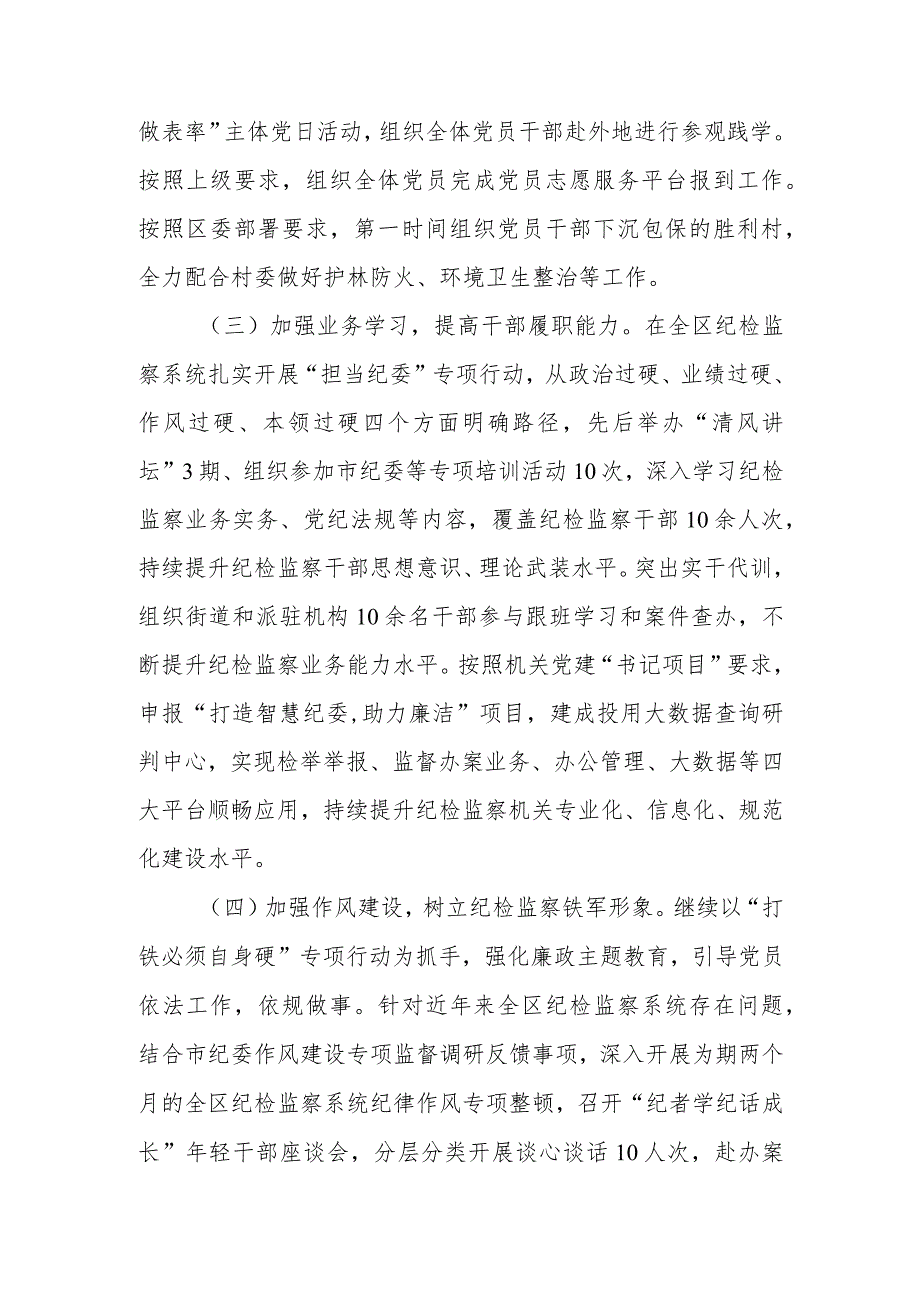 做表率”主体党日活动，组织全体党员干部赴外地进行参观践学。
按照上级要求，组织全体党员完成党员志愿服务平台报到工作。
按照区委部署要求，第一时间组织党员干部下沉包保的胜利村，
全力配合村委做好护林防火、环境卫生整治等工作。
（三）加强业务学习，提高干部履职能力。在全区纪检监
察系统扎实开展“担当纪委”专项行动，从政治过硬、业绩过硬、
作风过硬、本领过硬四个方面明确路径，先后举办“清风讲
坛”3期、组织参加市纪委等专项培训活动10次，深入学习纪检
监察业务实务、党纪法规等内容，覆盖纪检监察干部10余人次，
持续提升纪检监察干部思想意识、理论武装水平。突出实干代训，
组织街道和派驻机构10余名干部参与跟班学习和案件查办，不
断提升纪检监察业务能力水平。按照机关党建“书记项目”要求，
申报“打造智慧纪委,助力廉洁”项目，建成投用大数据查询研
判中心，实现检举举报、监督办案业务、办公管理、大数据等四
大平台顺畅应用，持续提升纪检监察机关专业化、信息化、规范
化建设水平。
（四）加强作风建设，树立纪检监察铁军形象。继续以“打
铁必须自身硬”专项行动为抓手，强化廉政主题教育，引导党员
依法工作，依规做事。针对近年来全区纪检监察系统存在问题，
结合市纪委作风建设专项监督调研反馈事项，深入开展为期两个
月的全区纪检监察系统纪律作风专项整顿，召开“纪者学纪话成
长”年轻干部座谈会，分层分类开展谈心谈话10人次，赴办案